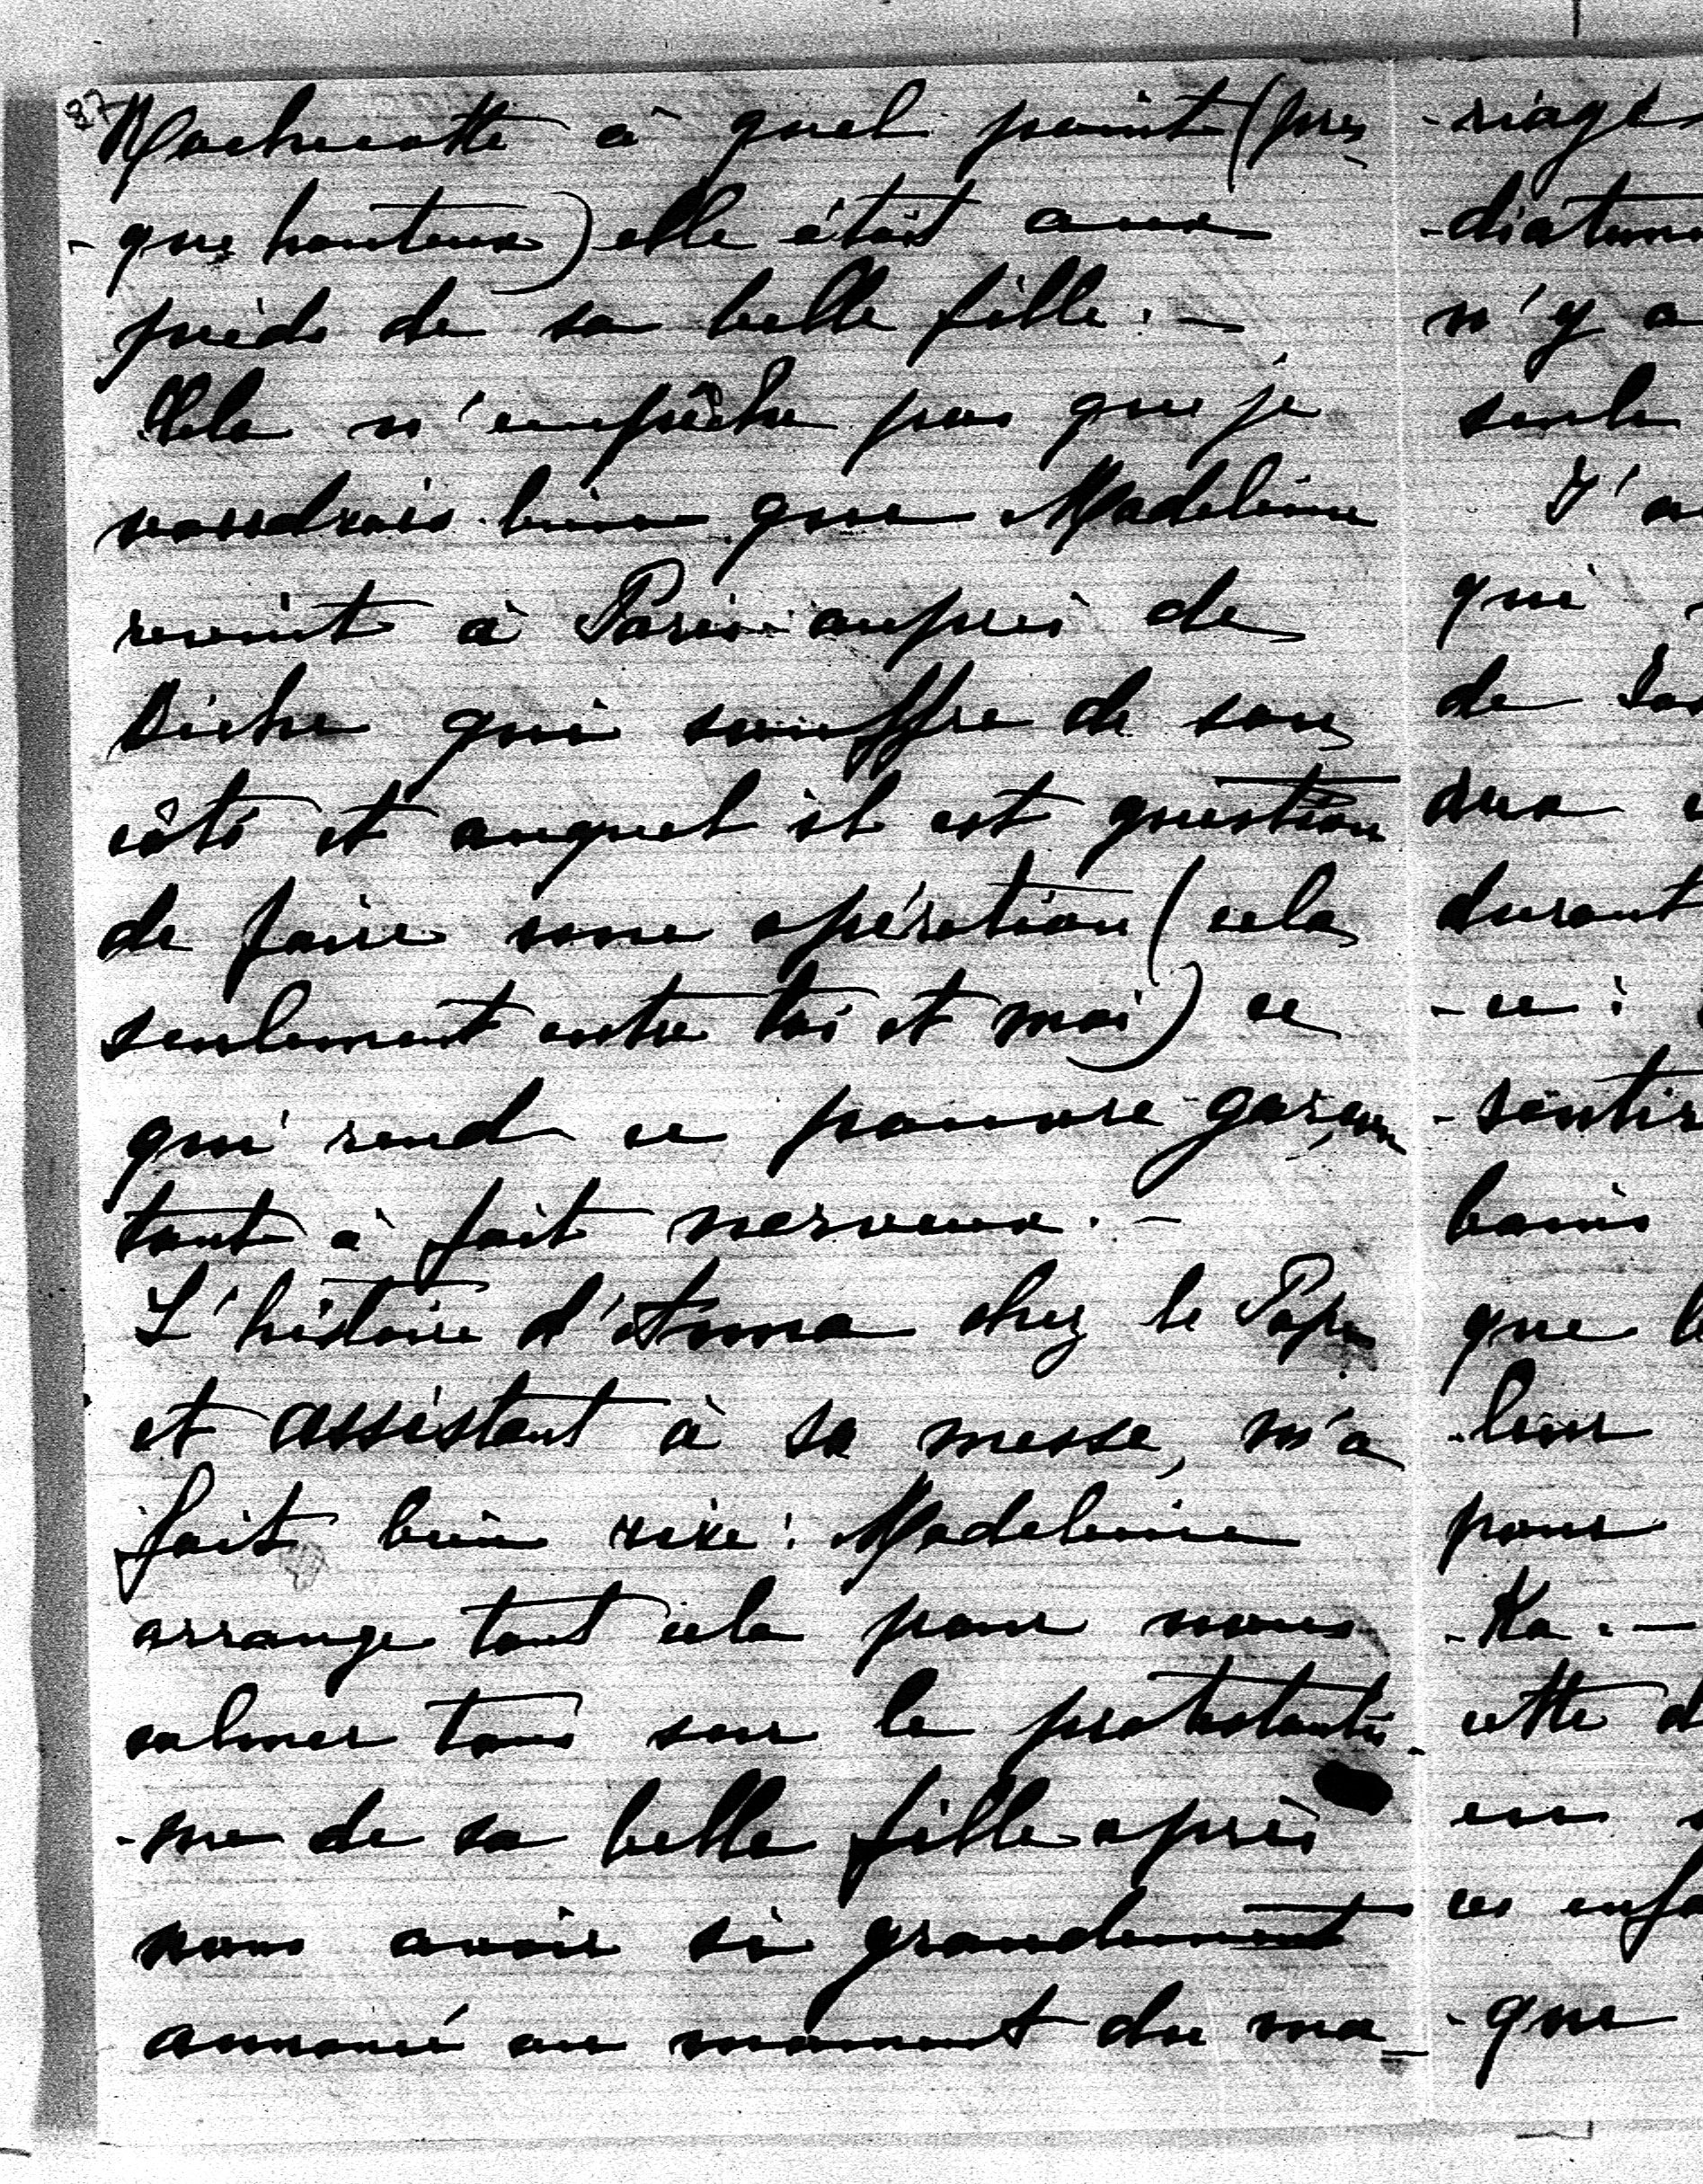 87
Rochecotte à quel point (pres
-que honteux) elle était aux
pieds de sa belle fille. -
Cela n'empêche pas que je
voudrais bien que Madeleine
revint à Paris auprès de
Biche qui souffre de son
côté et auquel il est question
de faire une opération (cela
seulement entre toi et moi) ce
qui rend ce pauvre garçon
tout à fait nerveux. -
L'histoire d'Anna chez le Pape
et assistant à sa messe, m'a
fait bien rire : Madeleine
arrange tout cela pour nous
calmer tous sur le protestantis-
-me de sa belle fille après
nous avoir si grandement
annoncé au moment du ma-
-riage
n'y a
seule
J'a
qui
de
deux
durant
-ce :
-sentir
bains
que
leur
pour
-Ka. -
cette d
en
ces enfa
-que